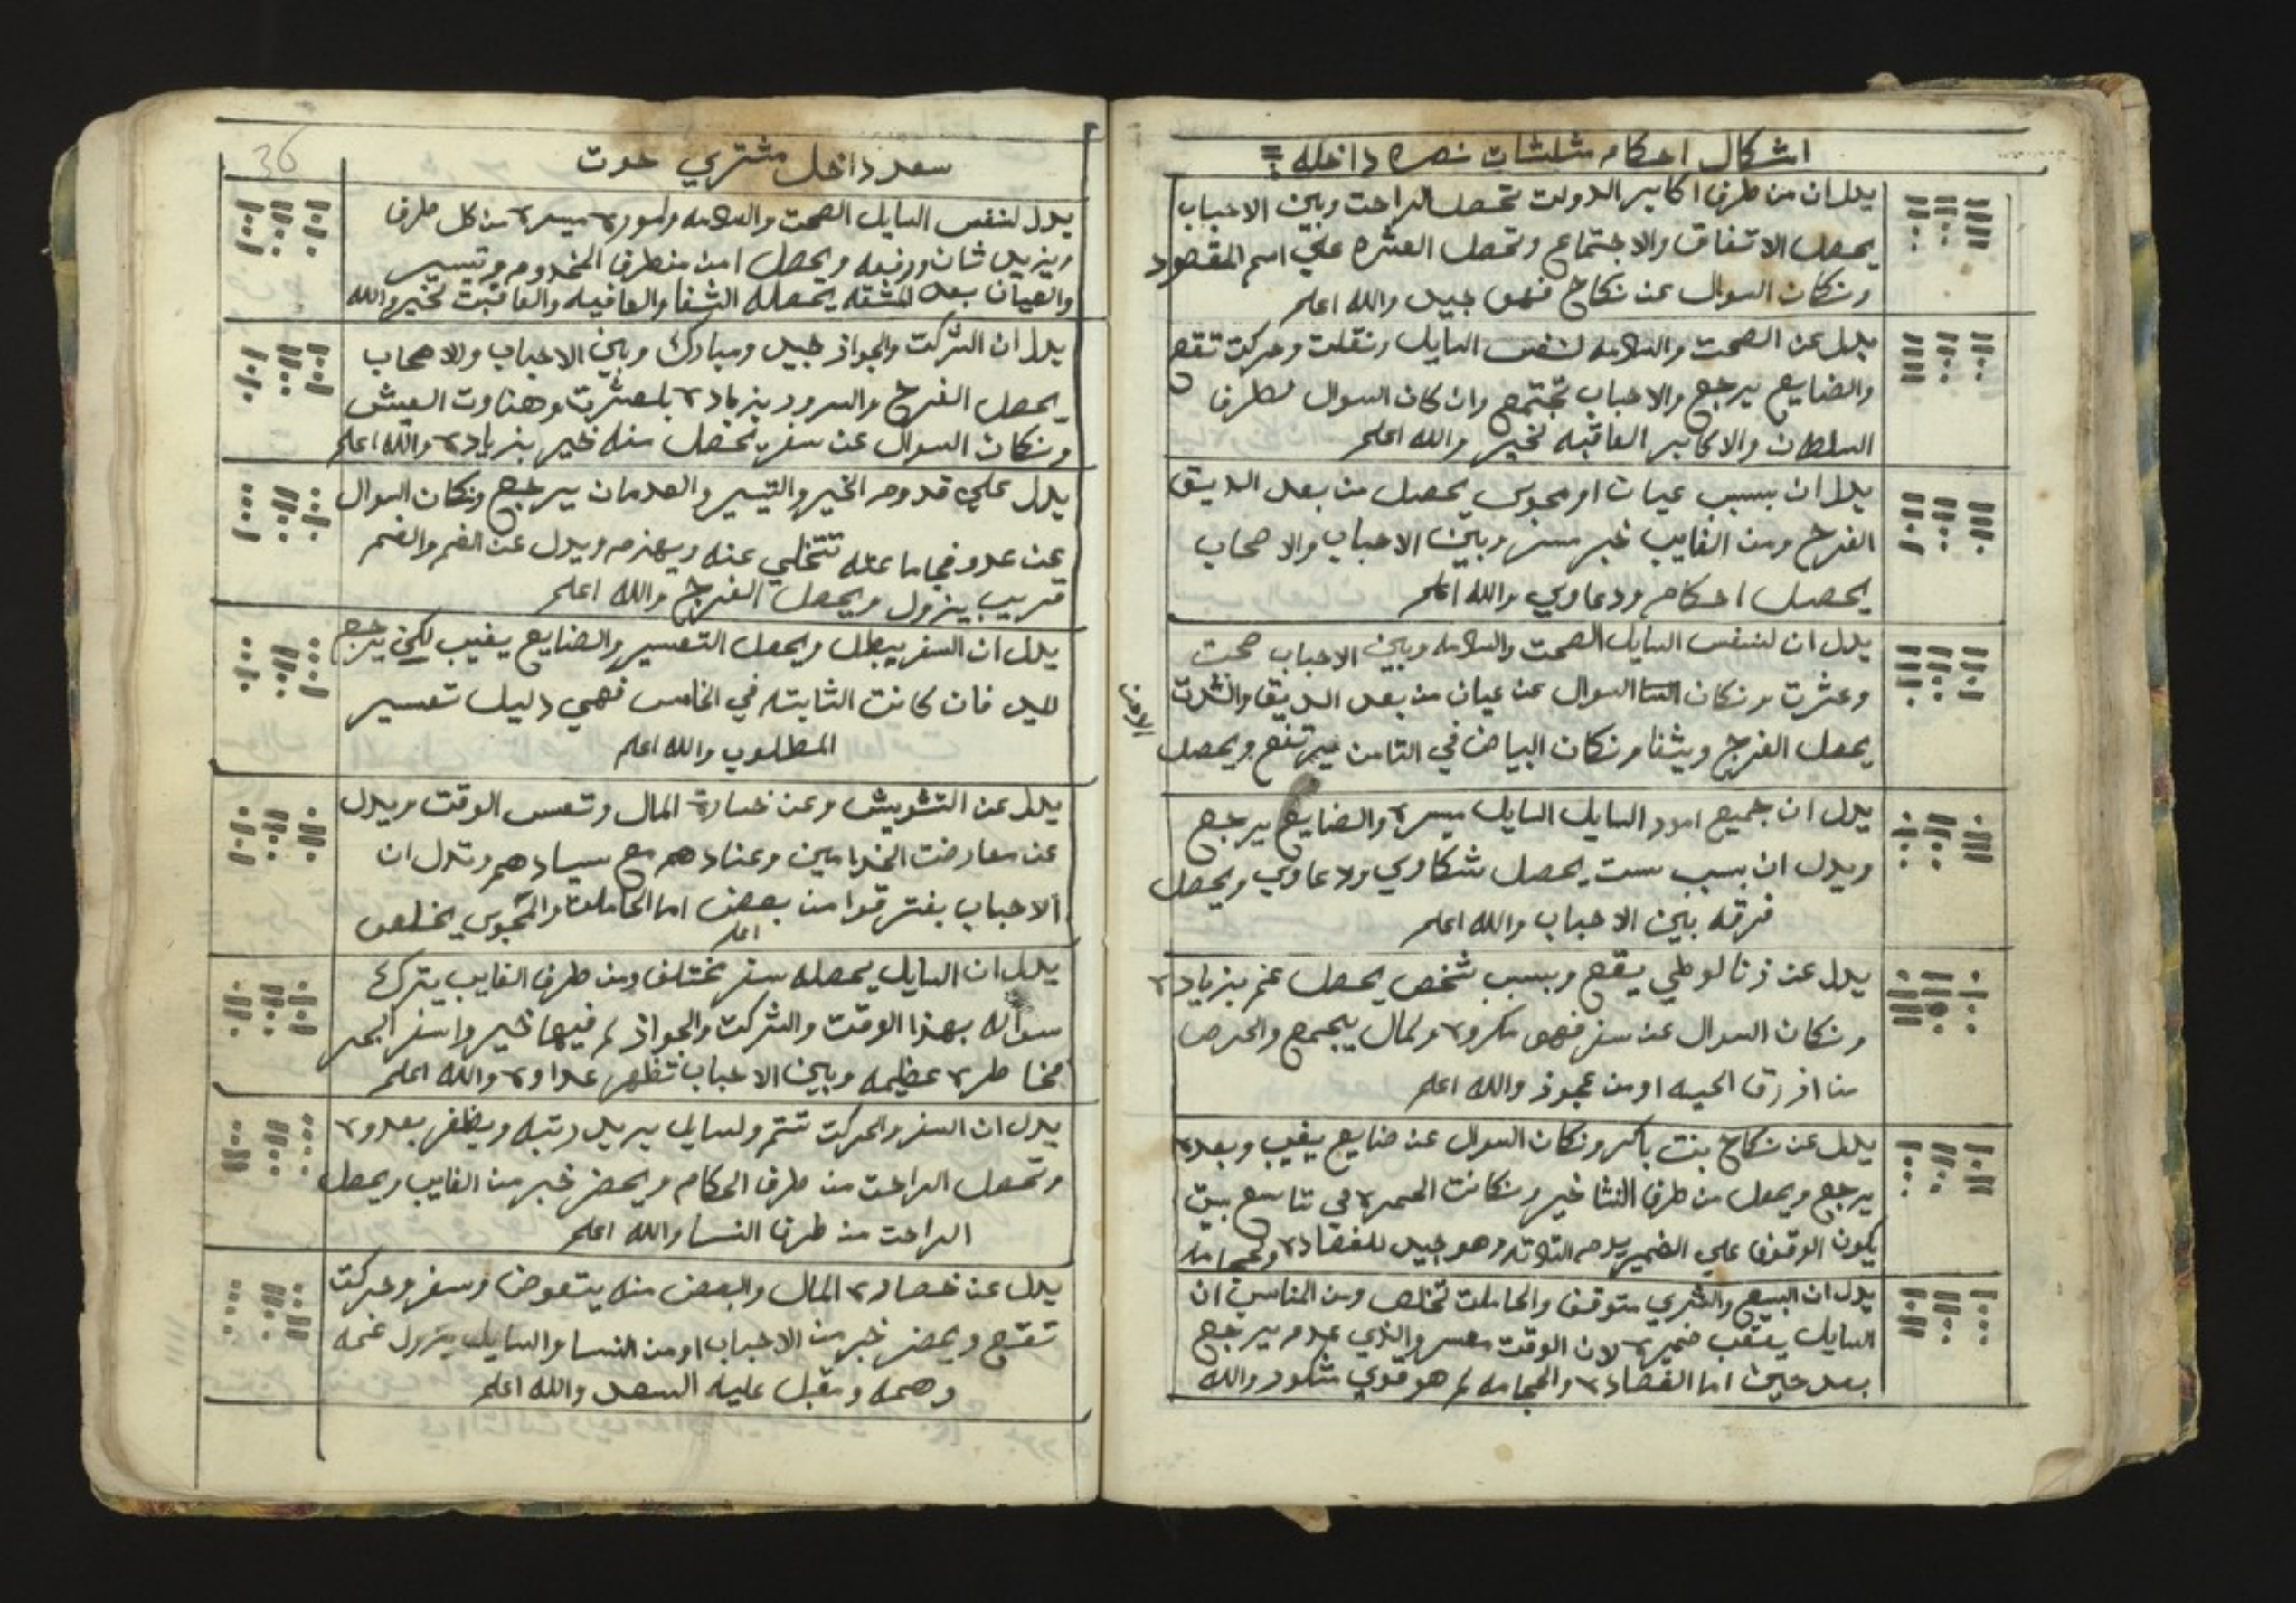 اشكال احكام مثلثات نصره داخله
يدل ان من طرف اكابير الدولت تحصل الراحت وبين الاحباب
يحصل الاتفاق والاجتماع وتحصل العشره علي اسم المقصود
ونكان السوال عن نكاح فهو جيد والله اعلم
يدل عن الصحت والسلامه لنفس السايل ونقلت وحركت تقع
والضايع يرجع والاحباب تجتمع وان كان السوال لطرف
السلطان والاكابير العاقبه لخير والله اعلم
يدل ان بسبب عيان او محبوس يحصل من بعد الديق
الفرح ومن الغايب خبر مسر وبين الاحباب والاصحاب
يحصل احكام ودعاوي والله اعلم
يدل ان لنفس السايل الصحت والسلامه وبين الاحباب صحت
وعشرت ونكان السوال عن عيان من بعد الديق والشدت
يحصل الفرج ويشفا ونكان البياض في الثامن يرتفع ويحصل
يدل ان جميع امور السايل السايل ميسره والضايع يرجع
ويدل ان بسبب ست يحصل شكاوي ودعاوي ويحصل
فرقه بين الاحباب والله اعلم
يدل عن زنا لوطي يقع وبسبب شخص يحصل غم بزياده
ونكان السوال عن سفر فهو مكروه ولمال يجمع والحرص
من ازرق الحيه او من عجوز والله اعلم
يدل عن نكاح بنت باكر ونكان السوال عن ضايع يغيب وبعده
يرجع ويحصل من طرف النشا خير ونكانت الحمره في تاسع بيت
يكون الوقوف علي الضمير يدم الثلاثه وهو جيد للفصاده ولحجامه
يدل ان البيع والشري متوقف والحاملت تخلص ومن المناسب ان
السايل يعقب ضميره لان الوقت معسر والذي عدم يرجع
بعد حين اما الفصاده والحجامه لم هو قوي مشكور والله
36
سعد داخل مشتري حوت
يدل لنفس السايل الصحت والسلامه ولموره ميسره من كل طرف
ويزيد شان ورفعه ويحصل امن منطرف المخدوم وتيسير
والعيان بعد المشقه يحصله الشفا والعافيه والعاقبت لخير والله
يدل ان الشركت والجواز جيد ومبارك وبين الاحباب والاصحاب
يحصل الفرح والسرور بزياده بلعشرت وهناوت العيش
ونكان السوال عن سفر يحصل منه خير بزياده والله اعلم
يدل علي قدوم الخير والتيسير والعدمان يرجع ونكان السوال
عن عدو فجاماعته تتخلي عنه ويهزم ويدل عن الغم والغم
قريب يزول ويحصل الفرج والله اعلم
يدل ان السفر يبطل ويحصل التعسير والضايع يغيب لكن يرجع
لليد فان كانت الثابته في الخامس فهي دليل تعسير
المطلوب والله اعلم
يدل عن التشويش وعن خسارة المال وتعس الوقت ويدل
عن معارضت الخدامين وعنادهم مع سيادهم وتدل ان
الاحباب يفترقوا من بعض اما الحاملت والمحبوس يخلص
اعلم
يدل ان السايل يحصله سفر مختلف ومن طرف الغايب يترك
سواله بهذا الوقت والشركت والجواز لم فيها خير واسفر البحر
مخاطره عظيمه وبين الاحباب تظهر عداوه والله اعلم
يدل ان السفر والحركت تتم ولسايل يريد رتبه ويظفر بعدوه
وتحصل الراحت من طرف الحكام ويحضر خبر من الغايب ويحصل
الراحت من طرف النسا والله اعلم
يدل عن خصاره المال والبعض منه يتعوض وسفر وحركت
تقع ويحضر خبر من الاحباب او من النسا والسايل يزول غمه
وهمه ومقبل عليه السعد والله اعلم